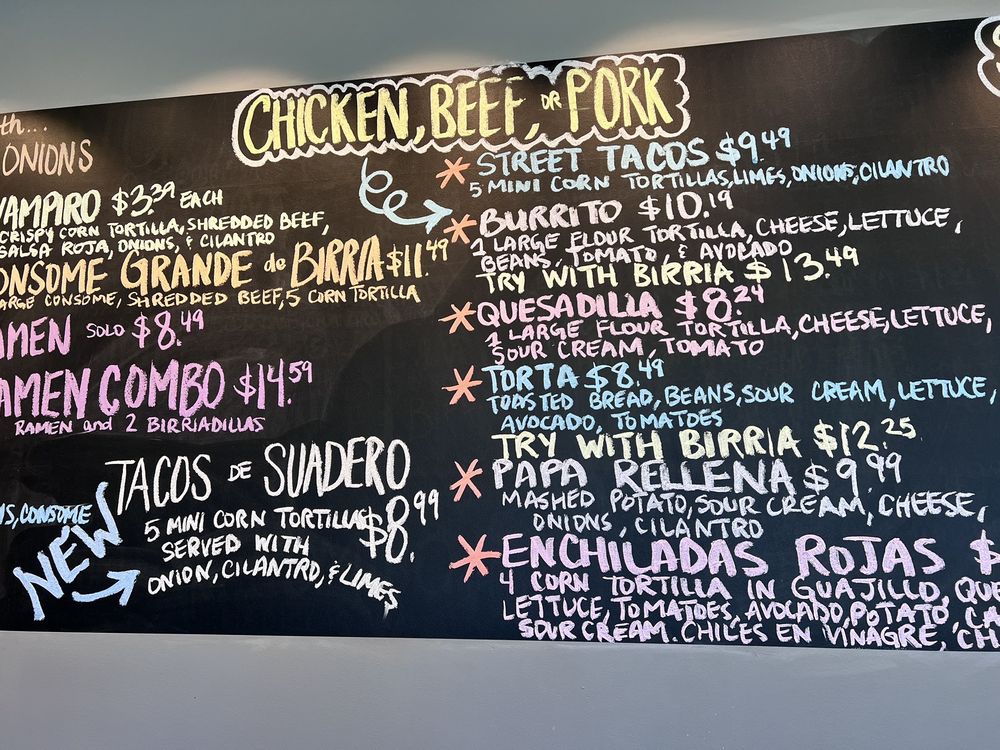 ONIONS
VAMPIRO $3.39 EACH
CRISPY CORN TORTILLA, SHREDDED BEEF,
SALSA ROJA, ONIONS, & CILANTRO
CONSOME GRANDE de BIRRIA $11.49
LARGE CONSOME, SHREDDED BEEF, 5 CORN TORTILLA
RAMEN SOLO $8.49
RAMEN COMBO $14.59
RAMEN and 2 BIRRIADILLAS
TACOS DE SUADERO
5 MINI CORN TORTILLAS $8.99
SERVED WITH
ONION, CILANTRO, & LIMES
CONSOME
NEW
CHICKEN, BEEF, OR PORK
* STREET TACOS $9.49
5 MINI CORN TORTILLAS, LIMES, ONIONS, CILANTRO
* BURRITO $10.19
1 LARGE FLOUR TORTILLA, CHEESE, LETTUCE,
BEANS, TOMATO, & AVOCADO
TRY WITH BIRRIA $13.49
* QUESADILLA $8.24
1 LARGE FLOUR TORTILLA, CHEESE, LETTUCE,
SOUR CREAM, TOMATO
* TORTA $8.49
TOASTED BREAD, BEANS, SOUR CREAM, LETTUCE,
AVOCADO, TOMATOES
TRY WITH BIRRIA $12.25
* PAPA RELLENA $9.99
MASHED POTATO, SOUR CREAM, CHEESE,
ONIONS, CILANTRO
* ENCHILADAS ROJAS $
4 CORN TORTILLA IN GUAJILLO, QUE
LETTUCE, TOMATOES, AVOCADO, POTATO, CA
SOUR CREAM. CHILES EN VINAGRE, CH